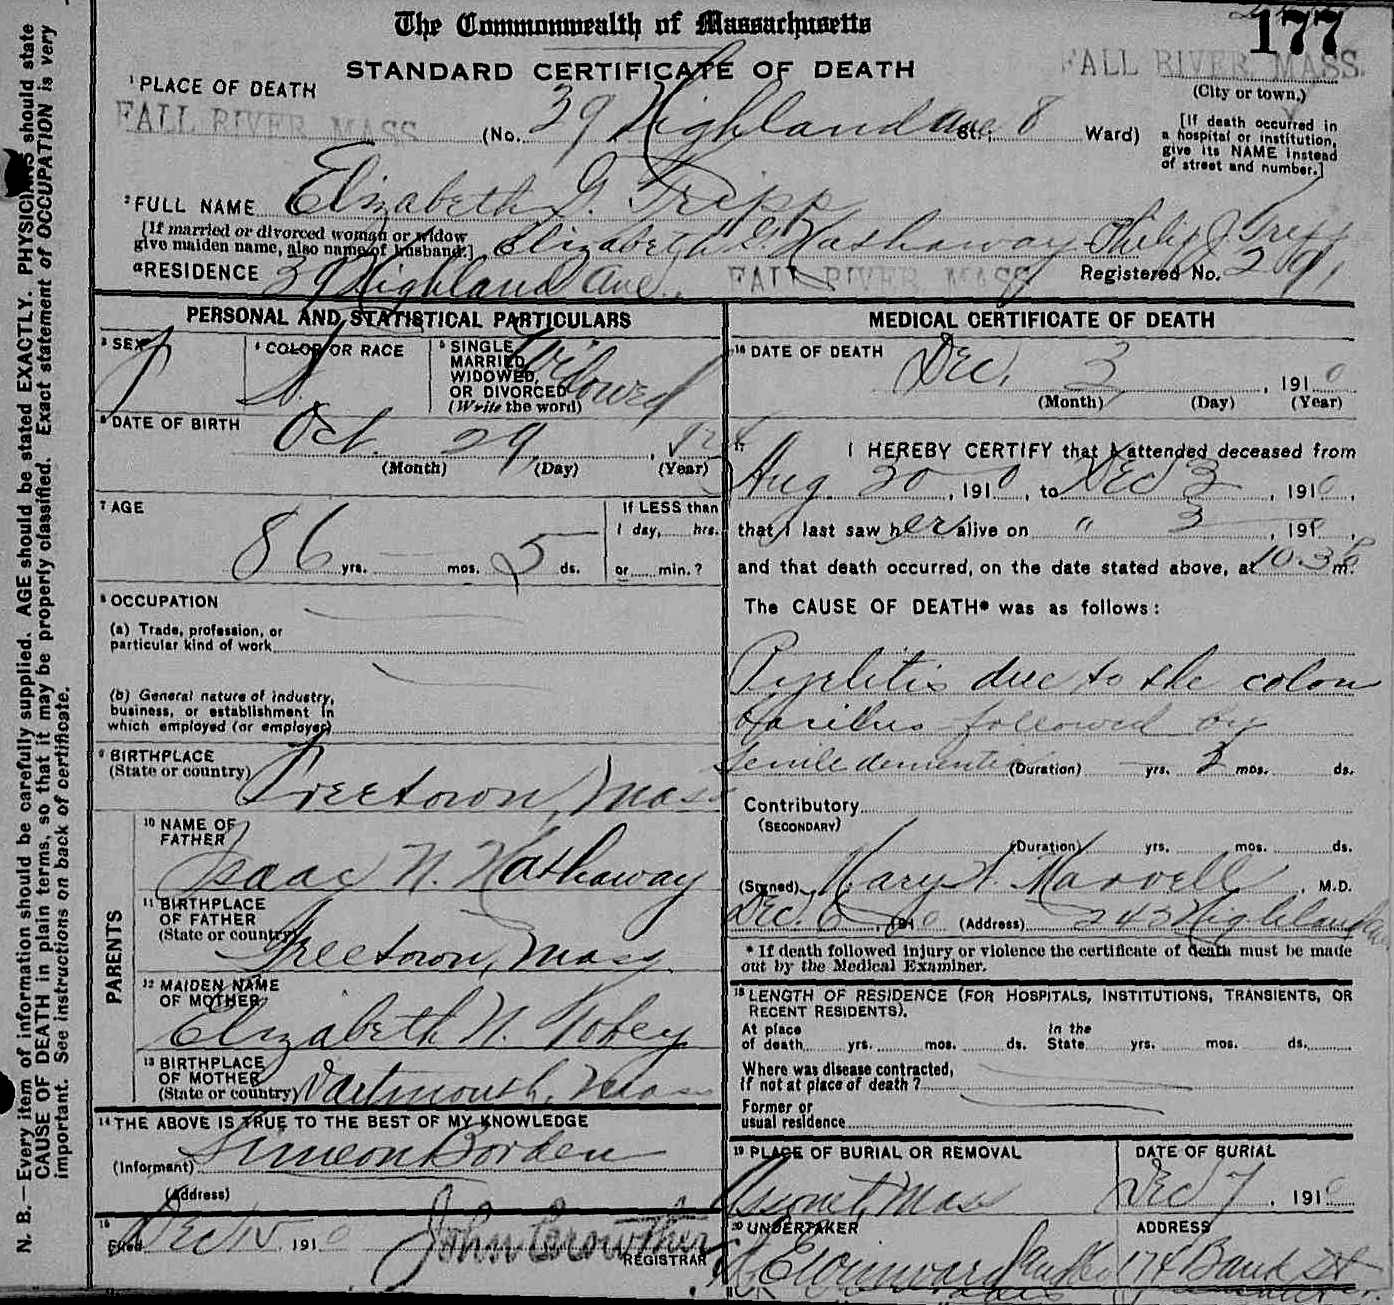 The Commonwealth of Massachusetts
177
STANDARD CERTIFICATE OF DEATH
FALL RIVER MASS.
(City or town.)
1 PLACE OF DEATH
FALL RIVER MASS
(No. 39 Highland Ave St.; 8 Ward)
[If death occurred in a hospital or institution, give its NAME instead of street and number.]
2 FULL NAME Elizabeth G. Tripp
[If married or divorced woman or widow give maiden name, also name of husband.] Elizabeth G. Hathaway - Philip J. Tripp
a RESIDENCE 39 Highland Ave., FALL RIVER MASS Registered No.
PERSONAL AND STATISTICAL PARTICULARS
3 SEX f
4 COLOR OR RACE
5 SINGLE, MARRIED, WIDOWED, OR DIVORCED (Write the word) Widowed
6 DATE OF BIRTH Oct. 29,
(Month) (Day) (Year)
7 AGE 86 yrs. mos. 5 ds.
If LESS than 1 day, hrs. or min.?
8 OCCUPATION
(a) Trade, profession, or particular kind of work
(b) General nature of industry, business, or establishment in which employed (or employer)
9 BIRTHPLACE (State or country) Freetown, Mass
PARENTS
10 NAME OF FATHER Isaac N. Hathaway
11 BIRTHPLACE OF FATHER (State or country) Freetown, Mass
12 MAIDEN NAME OF MOTHER Elizabeth N. Tobey
13 BIRTHPLACE OF MOTHER (State or country) Dartmouth, Mass
14 THE ABOVE IS TRUE TO THE BEST OF MY KNOWLEDGE
(Informant) Simeon Borden
(Address)
15 Filed Dec 15 1910 John Crowther
REGISTRAR
MEDICAL CERTIFICATE OF DEATH
16 DATE OF DEATH Dec. 3, 1910
(Month) (Day) (Year)
17 I HEREBY CERTIFY that I attended deceased from
Aug. 20, 1910, to Dec 3, 1910,
that I last saw her alive on " 3, 1910,
and that death occurred, on the date stated above, at m.
The CAUSE OF DEATH* was as follows:
Pyelitis due to the colon
bacillus followed by
senile dementia (Duration) yrs. 3 mos. ds.
Contributory (SECONDARY)
(Duration) yrs. mos. ds.
(Signed) Mary W. Marvell, M.D.
Dec. 6, 1910 (Address) 243 Highland Ave
* If death followed injury or violence the certificate of death must be made out by the Medical Examiner.
18 LENGTH OF RESIDENCE (FOR HOSPITALS, INSTITUTIONS, TRANSIENTS, OR RECENT RESIDENTS).
At place of death yrs. mos. ds. In the State yrs. mos. ds.
Where was disease contracted, if not at place of death?
Former or usual residence
19 PLACE OF BURIAL OR REMOVAL Assonet, Mass
DATE OF BURIAL Dec 7, 1910
20 UNDERTAKER Winward
ADDRESS 174 Bank St
N. B.—Every item of information should be carefully supplied. AGE should be stated EXACTLY. PHYSICIANS should state
CAUSE OF DEATH in plain terms, so that it may be properly classified. Exact statement of OCCUPATION is very
important. See instructions on back of certificate.